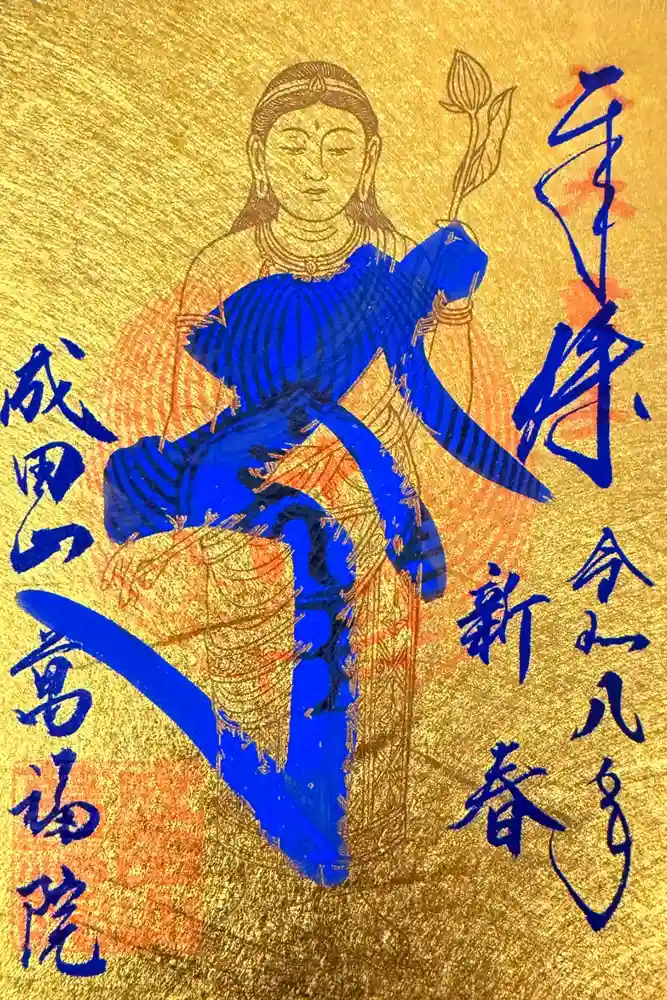 奉拝
令和八年
新春
成田山
萬福院